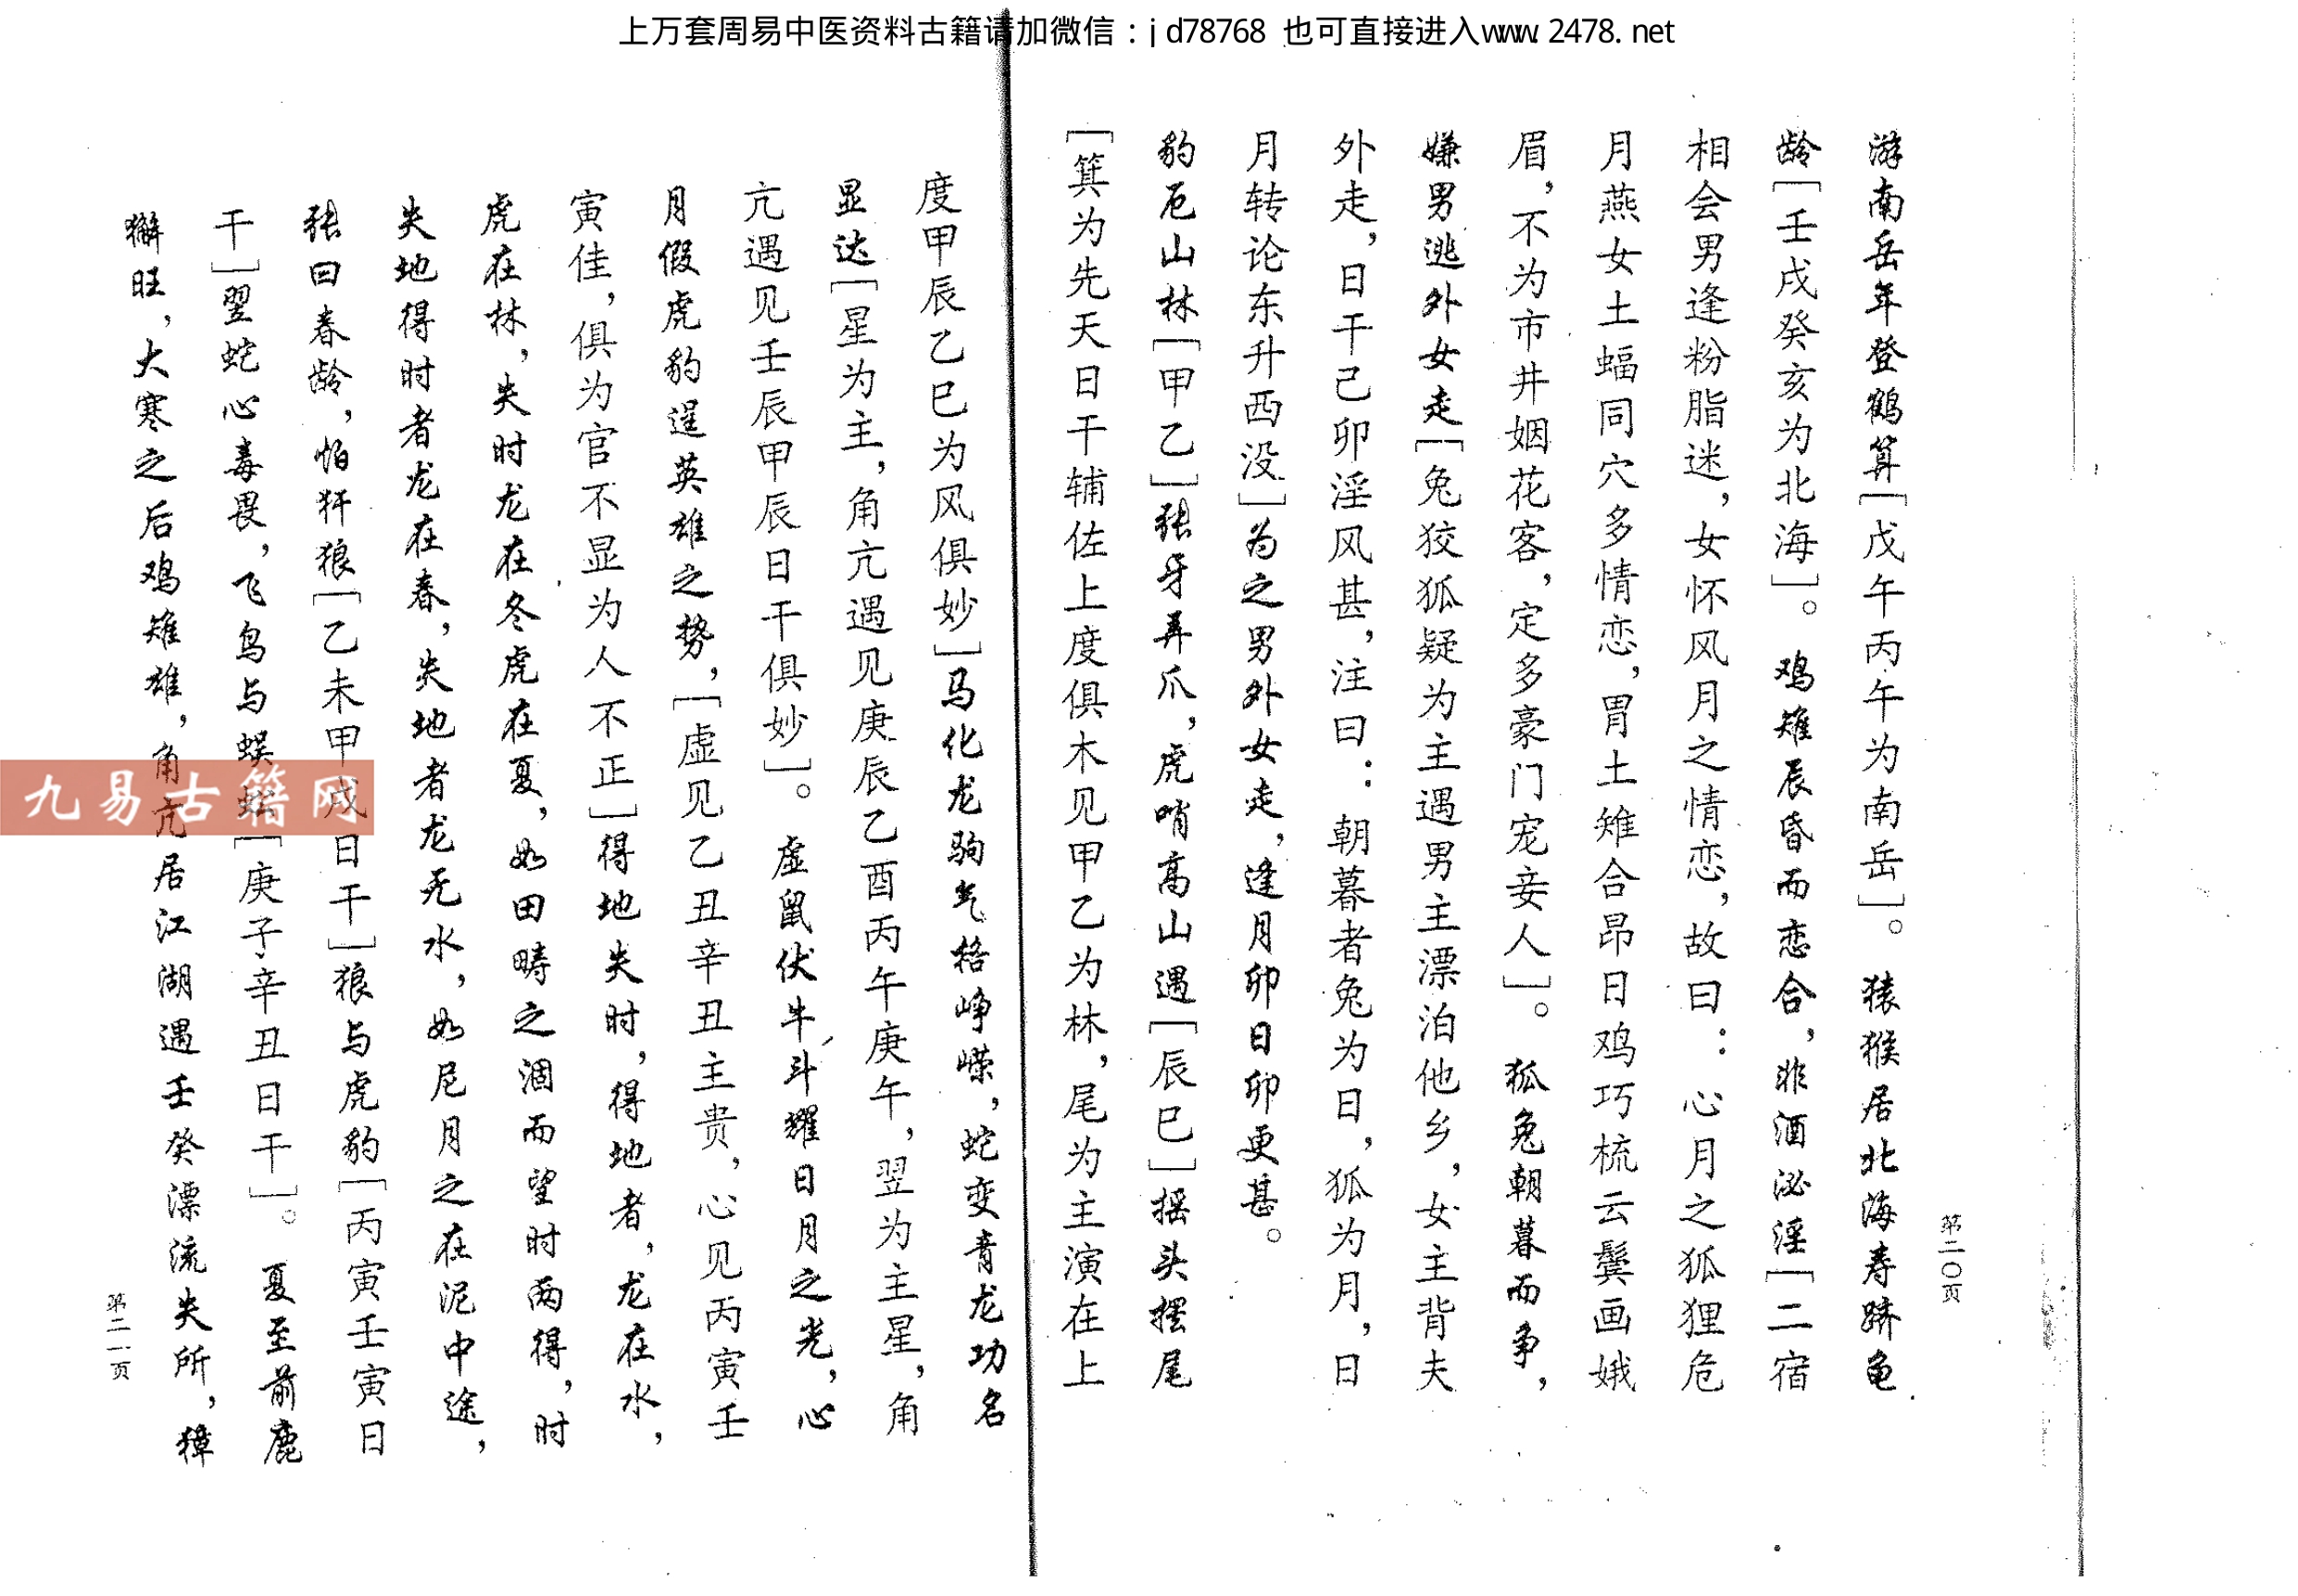 上万套周易中医资料古籍请加微信：jd78768 也可直接进入www.2478.net
第二〇页
游南岳年登鹤算[戊午丙午为南岳]。猿猴居北海寿跻龟
龄[壬戌癸亥为北海]。鸡雉辰昏而恋合，非酒泌淫[二宿
相会男逢粉脂迷，女怀风月之情恋，故曰：心月之狐狸危
月燕女土蝠同穴多情恋，胃土雉合昴日鸡巧梳云鬓画娥
眉，不为市井姻花客，定多豪门宠妾人]。狐兔朝暮而争，
嫌男逃外女走[兔狡狐疑为主遇男主漂泊他乡，女主背夫
外走，日干己卯淫风甚，注曰：朝暮者兔为日，狐为月，日
月转论东升西没]为之男外女走，逢月卯日卯更甚。
豹厄山林[甲乙]张牙弄爪，虎哨高山遇[辰巳]摇头摆尾
[箕为先天日干辅佐上度俱木见甲乙为林，尾为主演在上
度甲辰乙巳为风俱妙]马化龙驹气格峥嵘，蛇变青龙功名
显达[星为主，角亢遇见庚辰乙酉丙午庚午，翌为主星，角
亢遇见壬辰甲辰日干俱妙]。虚鼠伏牛斗耀日月之光，心
月假虎豹逞英雄之势，[虚见乙丑辛丑主贵，心见丙寅壬
寅佳，俱为官不显为人不正]得地失时，得地者，龙在水，
虎在林，失时龙在冬虎在夏，如田畴之涸而望时两得，时
失地得时者龙在春，失地者龙无水，如尼月之在泥中途，
张曰春龄，怕犴狼[乙未甲戌日干]狼与虎豹[丙寅壬寅日
干]翌蛇心毒畏，飞鸟与蜈蚣[庚子辛丑日干]。夏至前鹿
獬旺，大寒之后鸡雉雄，角亢居江湖遇壬癸漂流失所，獐
第二一页
九易古籍网